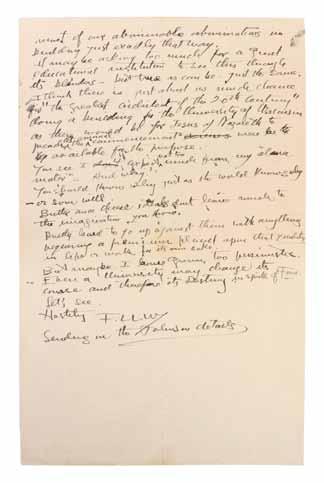 most of our abominable abominations in
building just exactly that way.
It may be asking too much for a great
educational institution to see this through
its blinders – but true as can be – just the same.
I think there is just about as much chance
for "the greatest architect of the 20th Century"
doing a building for the University of Wisconsin
as there would be for Jesus of Nazareth to
preach the commencement were he to
be available for the purpose.
You see I expect not too much from my "alma
mater". And why?
You should know why just as the world knows why
or soon will.
leaves much to
the imagination you know.
Pretty hard to go up against them with anything
requiring a premium placed upon that quality
in life or work for its own sake.
But maybe I have grown too pessimistic.
Even a University may change its
course and therefore its destiny in spite of
Let's see.
Hastily F.LL.W.
Sending on the Johnson details